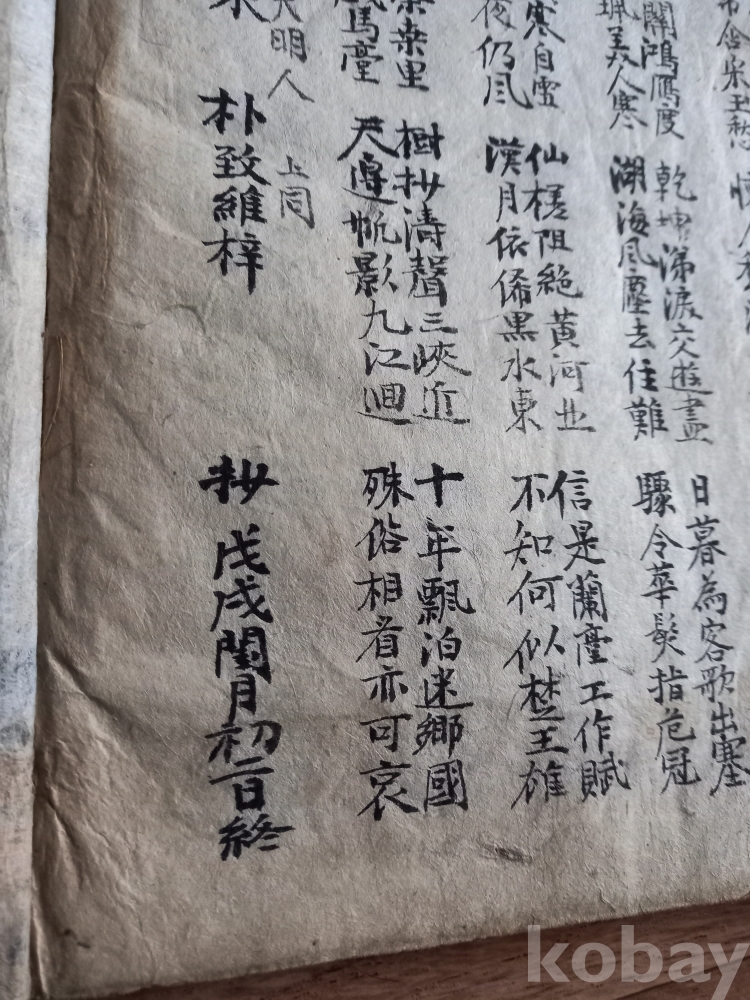 含宋玉愁 情人
關鴻鴈度 乾坤涕淚交遊盡 日暮為客歌出塞
珮美人寒 湖海風塵去住難 驟令華髮指危冠
寒自雪 仙槎阻絶黄河北 信是蘭臺工作賦
夜仍風 漢月依俙黒水東 不知何似楚王雄
里 樹抄濤聲三峽近 十年飄泊迷鄉國
馬臺 天邊帆影九江迴 殊俗相看亦可哀
大明人 上同
朴致維梓 抄 戊戌閏月初一日終
kobay